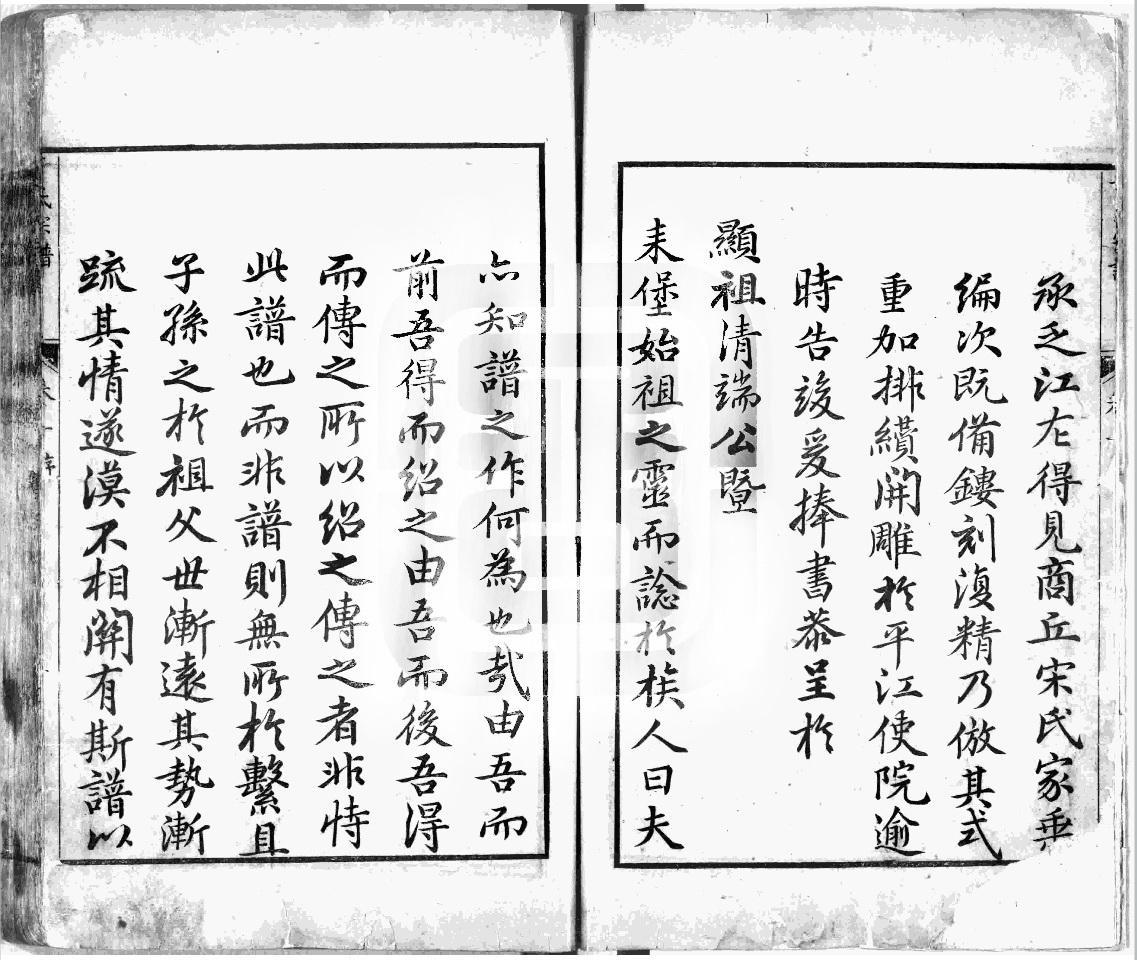 承乏江左得見商丘宋氏家乗
編次既備鏤刻復精乃倣其式
重加排纘開雕於平江使院逾
時告竣爰捧書恭呈於
顯祖清端公暨
来堡始祖之靈而諗於族人曰夫
亦知譜之作何為也哉由吾而
前吾得而紹之由吾而後吾得
而傳之所以紹之傳之者非恃
此譜也而非譜則無所於繫且
子孫之於祖父世漸遠其勢漸
疏其情遂漠不相關有斯譜以
氏宗譜
序